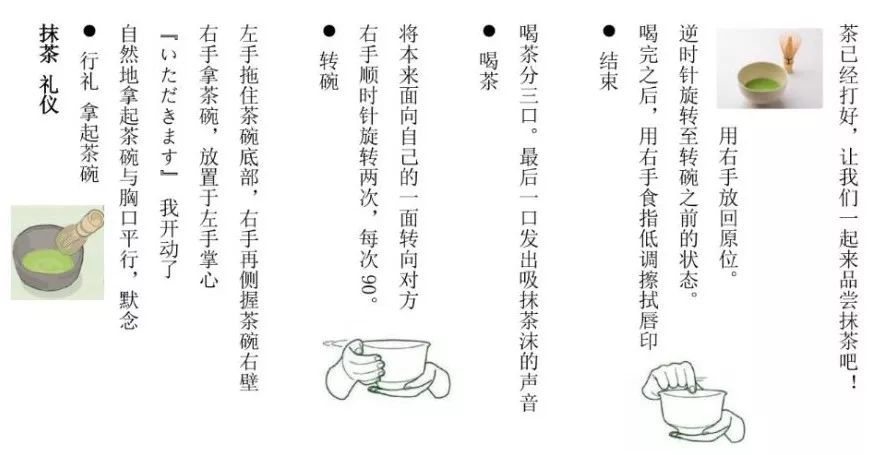 抹茶 礼仪
● 行礼 拿起茶碗
自然地拿起茶碗与胸口平行，默念
『いただきます』 我开动了
右手拿茶碗，放置于左手掌心
左手拖住茶碗底部，右手再侧握茶碗右壁
● 转碗
右手顺时针旋转两次，每次 90。
将本来面向自己的一面转向对方
● 喝茶
喝茶分三口。最后一口发出吸抹茶沫的声音
● 结束
喝完之后，用右手食指低调擦拭唇印
逆时针旋转至转碗之前的状态。
用右手放回原位。
茶已经打好，让我们一起来品尝抹茶吧！